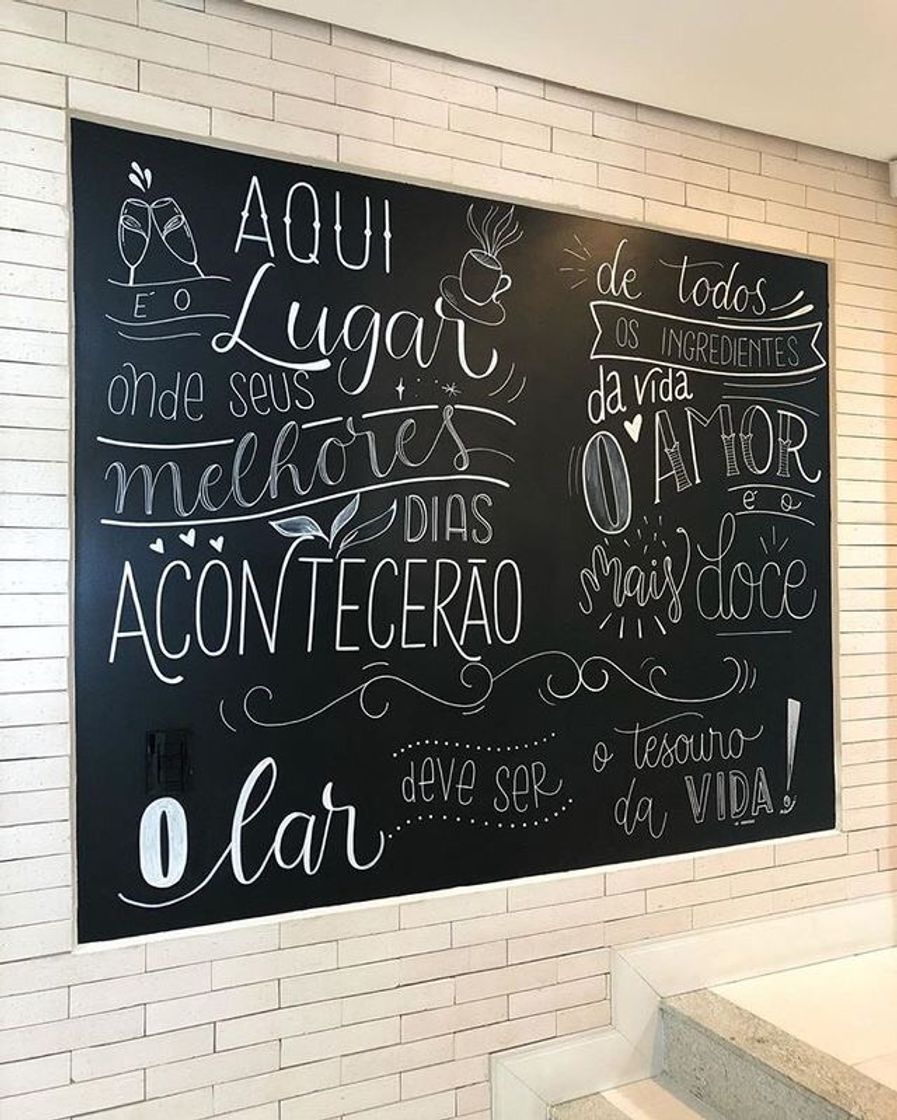 AQUI
É O Lugar
onde seus
melhores
DIAS
ACONTECERÃO
de todos
OS INGREDIENTES
da vida
O AMOR
é o
mais doce
O lar deve ser o tesouro
da VIDA!